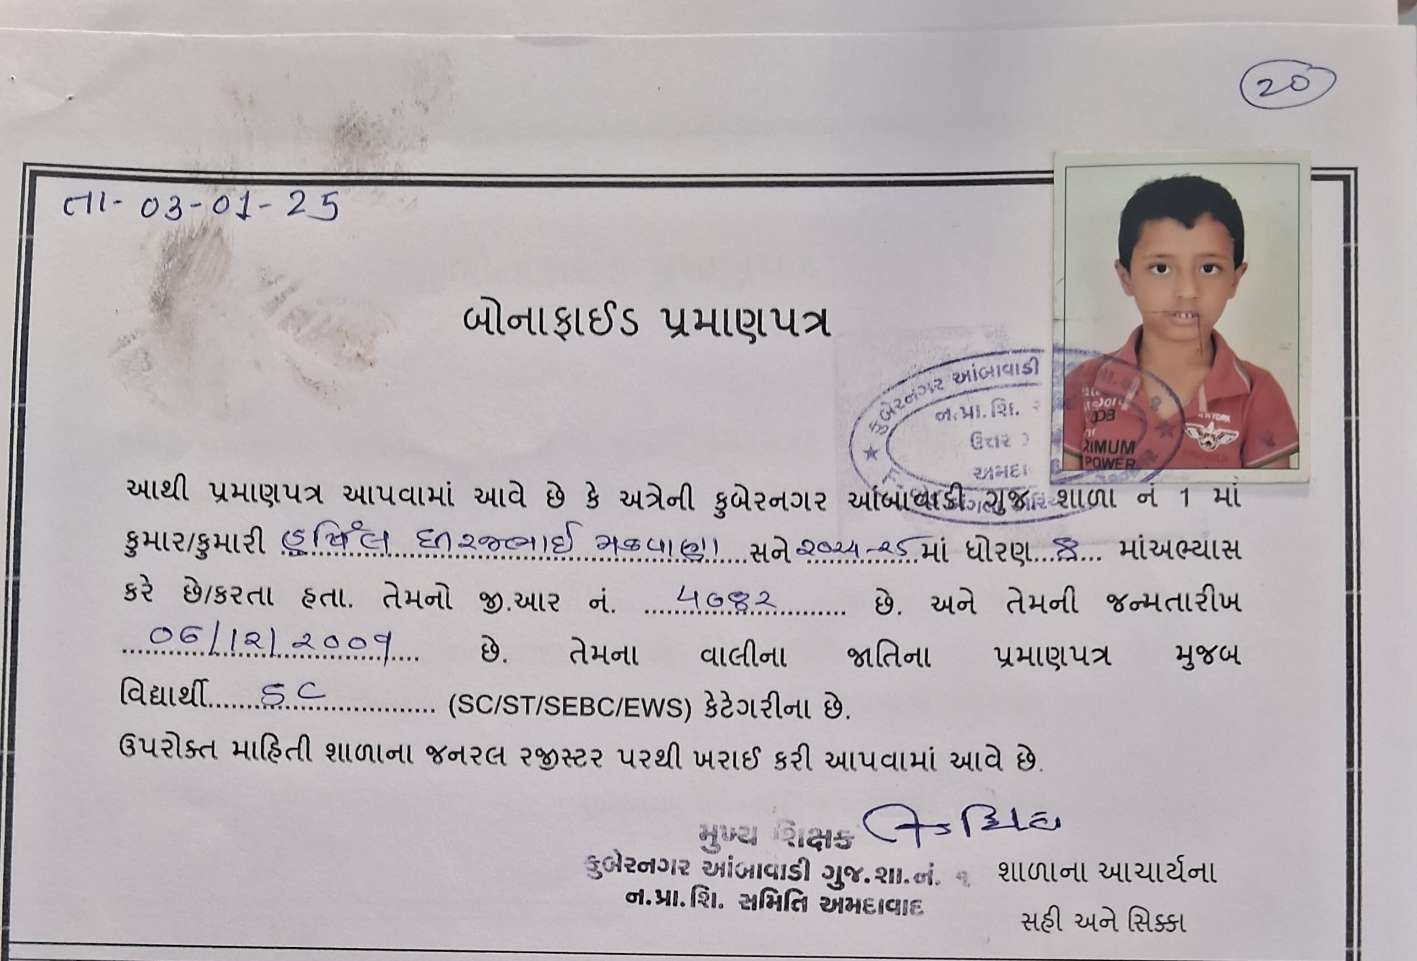 20
તા- 03-01-25
બોનાફાઈડ પ્રમાણપત્ર
કુબેરનગર આંબાવાડી
ન.પ્રા.શિ.
ઉત્તર
અમદા
RIMUM
POWER
આથી પ્રમાણપત્ર આપવામાં આવે છે કે અત્રેની કુબેરનગર આંબાવાડી ગુજ શાળા નં 1 માં
કુમાર/કુમારી હર્ષિલ ધીરજભાઈ મકવાણા સને ૨૦૨૪-૨૫ માં ધોરણ... ...માંઅભ્યાસ
કરે છે/કરતા હતા. તેમનો જી.આર નં. ૫૭૪૨ છે. અને તેમની જન્મતારીખ
૦૬/૧૨/૨૦૦૧ છે. તેમના વાલીના જાતિના પ્રમાણપત્ર મુજબ
વિદ્યાર્થી SC (SC/ST/SEBC/EWS) કેટેગરીના છે.
ઉપરોક્ત માહિતી શાળાના જનરલ રજીસ્ટર પરથી ખરાઈ કરી આપવામાં આવે છે.
મુખ્ય શિક્ષક
કુબેરનગર આંબાવાડી ગુજ.શા.નં. ૧
ન.પ્રા.શિ. સમિતિ અમદાવાદ
શાળાના આચાર્યના
સહી અને સિક્કા